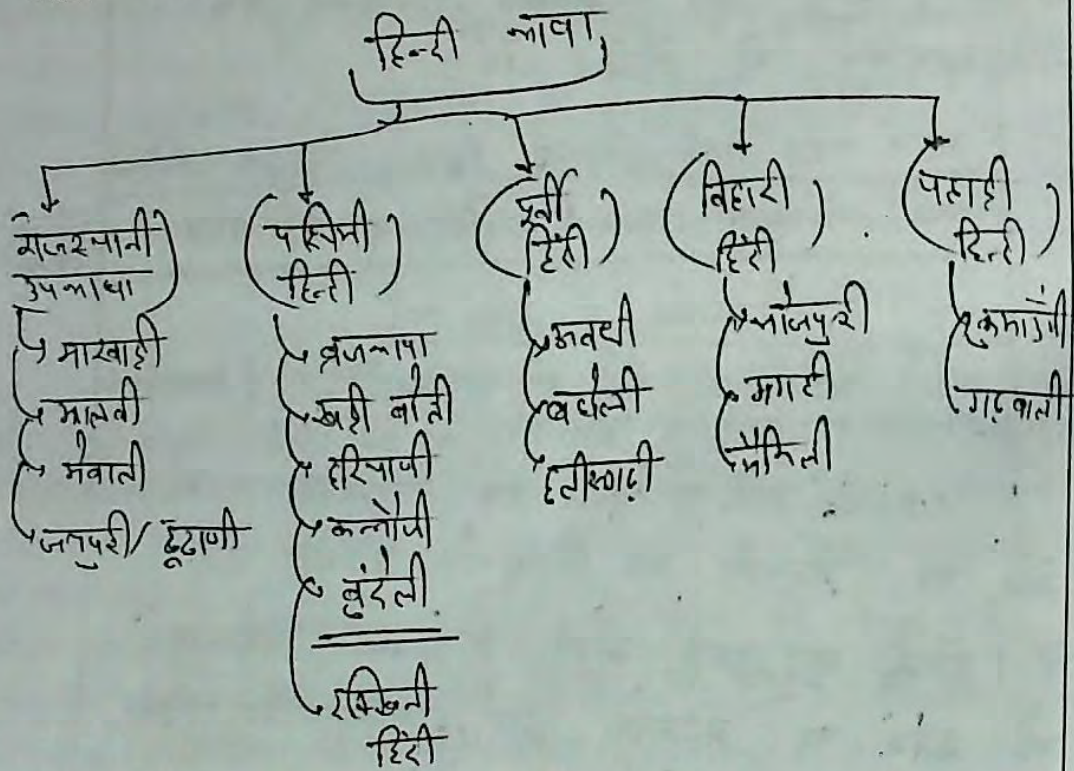 हिन्दी भाषा
राजस्थानी
उपभाषा
मारवाड़ी
मालवी
मेवाती
जयपुरी/ढूंढाणी
पश्चिमी
हिन्दी
ब्रजभाषा
खड़ी बोली
हरियाणी
कन्नौजी
बुंदेली
दक्खिनी
हिंदी
पूर्वी
हिंदी
अवधी
बघेली
छत्तीसगढ़ी
बिहारी
हिंदी
भोजपुरी
मगही
मैथिली
पहाड़ी
हिन्दी
कुमाऊँनी
गढ़वाली